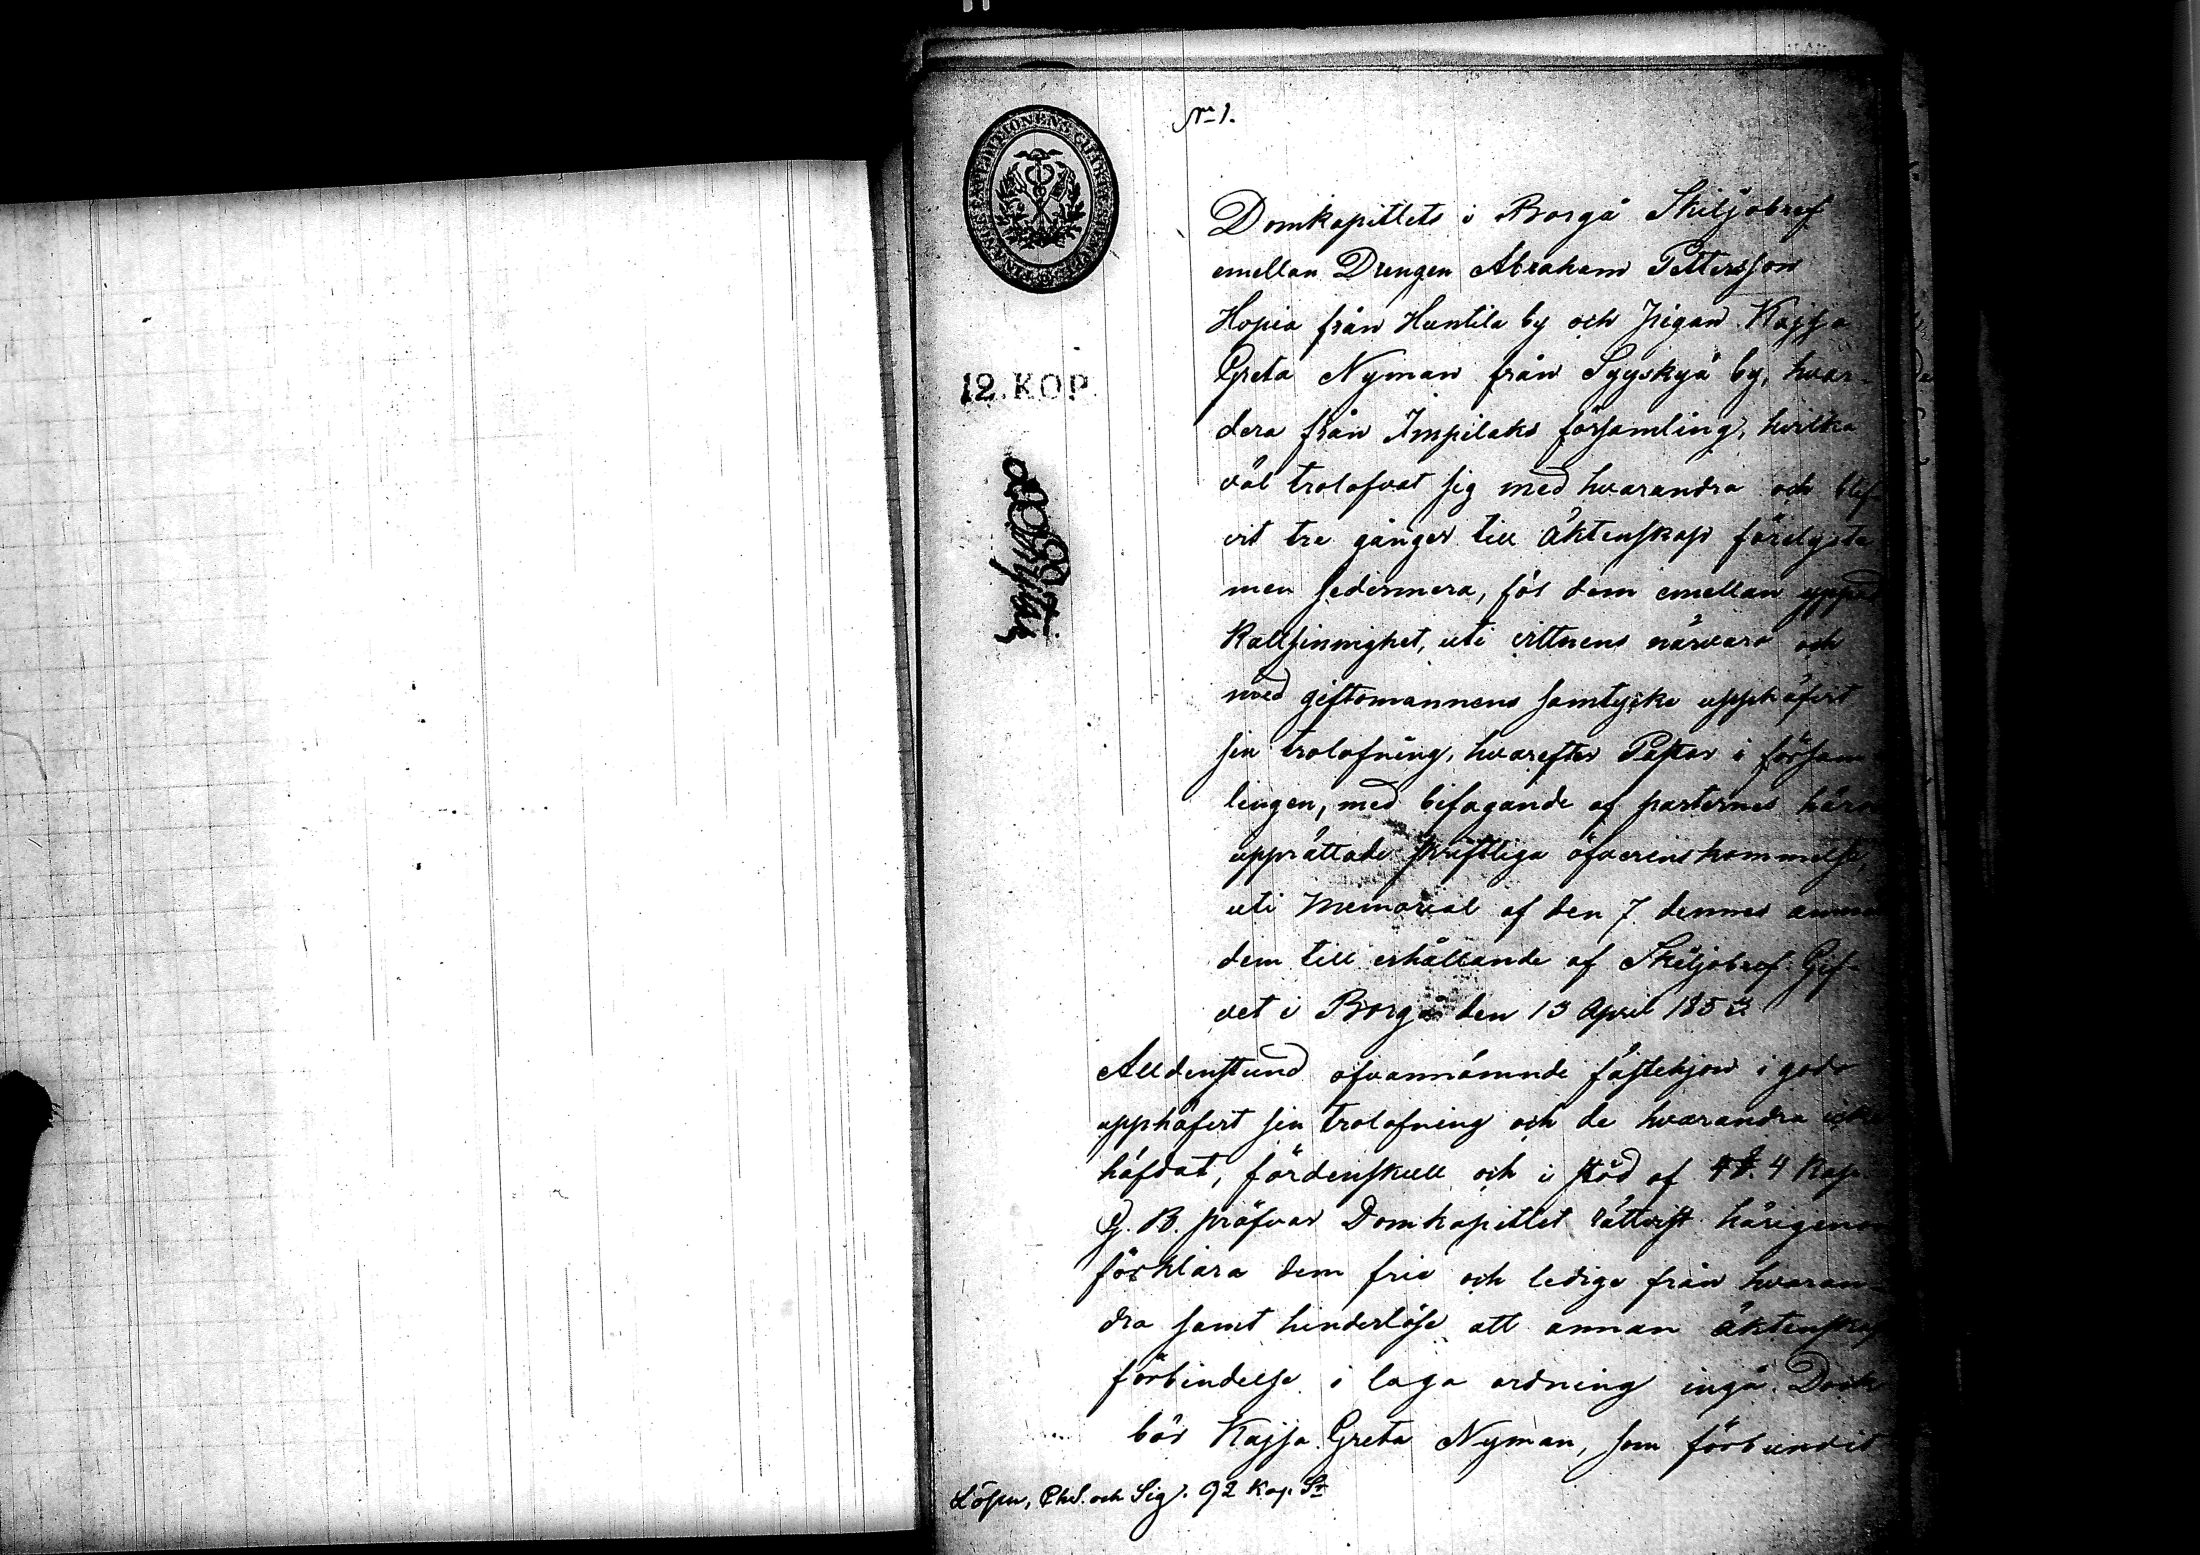 No 1.
Domkapitlets i Borgå Skiljobref
emellan Drengen Abraham Pettersson
Hopia från Huntila by och Pigan Kajsa
Greta Nyman från Syyskyä by, hvar-
dera från Impilaks församling, hvilka
väl trolofvat sig med hvarandra och blif-
vit tre gånger till äktenskap förelyste
men sedermera, för dem emellan
kallsinnighet, uti vittnens närvaro och
med giftomannens samtycke upphäfvit
sin trolofning, hvarefter Pastor i försam-
lingen, med bifogande af parternes
upprättade skriftliga öfverenskommelse,
uti Memorial af den 7 dennes
dem till erhållande af Skiljobref. Gif-
vet i Borgå den 13 April 1853
Alldenstund ofvannämnde fästehjon i godo
upphäfvit sin trolofning och de hvarandra icke
häfdat, fördenskull och i stöd af 4 Kap.
G. B. pröfvar Domkapitlet rättvist härigenom
förklara dem fria och lediga från hvaran-
dra samt hinderlöse att annan äktenskaps
förbindelse i laga ordning ingå. Dock
bör Kajsa Greta Nyman, som förbundit
Lösen, Chs. och Sig. 92 Kop. Sr
12. KOP.